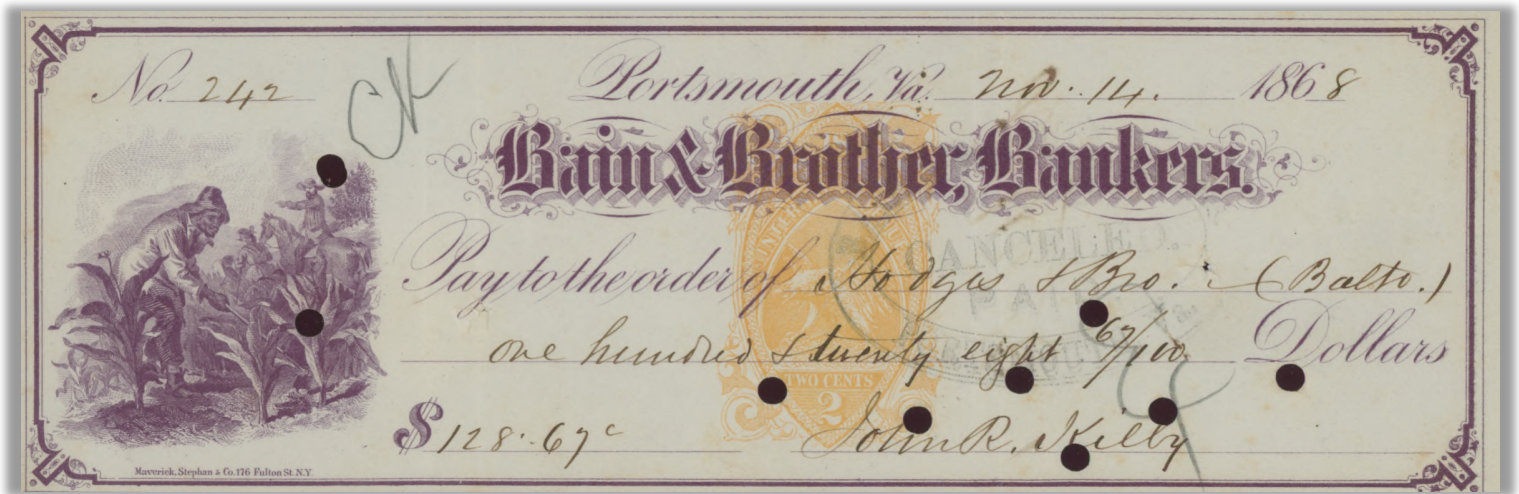 No. 242 CK Portsmouth, Va. Nov. 14. 1868
Bain & Brother, Bankers.
Pay to the order of Hodges & Bro. (Balto.)
CANCELED.
PAID
one hundred & twenty eight 67/100 Dollars
TWO CENTS
2
$128.67c John R. Kilby
Maverick, Stephan & Co. 176 Fulton St. N.Y.